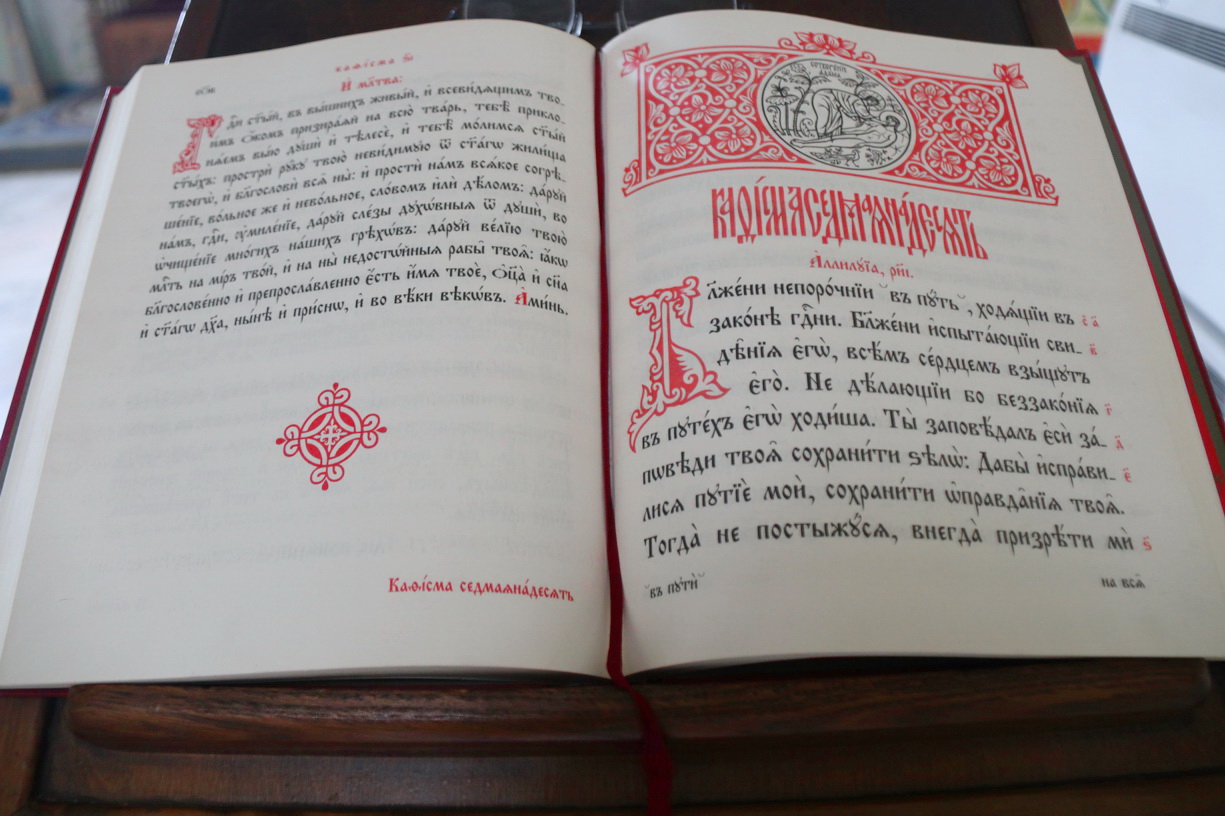 каѳі́сма ѕ҃і
И҆ мл҃тва:
Гдⷭ҇и ст҃ы́й, въ вы́шнихъ живы́й, и҆ всеви́дѧщимъ тво-
и́мъ ѻ҆́комъ призира́ѧй на всю̀ тва́рь, тебѣ̀ прикло-
нѧ́емъ вы́ю дꙋшѝ и҆ тѣлесѐ, и҆ тебѣ̀ мо́лимсѧ ст҃ы́й
ст҃ы́хъ: прострѝ рꙋ́кꙋ твою̀ неви́димꙋю ѿ ст҃а́гѡ жили́ща
твоегѡ̀, и҆ блгⷭ҇овѝ всѧ̑ ны̀: и҆ простѝ на́мъ всѧ́кое согрѣ-
ше́нїе, во́льное же и҆ нево́льное, сло́вомъ и҆лѝ дѣ́ломъ: да́рꙋй
на́мъ, гдⷭ҇и, ᲂу҆миле́нїе, да́рꙋй сле́зы дꙋхѡ́вныѧ ѿ дꙋшѝ, во
ѡ҆чище́нїе мно́гихъ на́шихъ грѣхѡ́въ: да́рꙋй ве́лїю твою̀
млⷭ҇ть на мі́ръ тво́й, и҆ на ны̀ недостѡ́йныѧ рабы̑ твоѧ̑: ꙗ҆́кѡ
блгⷭ҇ове́нно и҆ препросла́вленно є҆́сть и҆́мѧ твоѐ, ѻ҆ц҃а̀ и҆ сн҃а
и҆ ст҃а́гѡ дх҃а, ны́нѣ и҆ при́снѡ, и҆ во вѣ́ки вѣкѡ́въ. А҆ми́нь.
Каѳі́сма седмаѧна́десѧть
Каѳі́сма седмаѧна́десѧть
А҆ллилꙋ́їа, рн҃і.
Бл҃же́ни непоро́чнїи ̆въ пꙋ́ть ̆, ходѧ́щїи въ є҃ а҃
зако́нѣ гдⷭ҇ни. Бл҃же́ни и҆спыта́ющїи сви- в҃
дѣ̑нїѧ є҆гѡ̀, всѣ́мъ се́рдцемъ взы́щꙋтъ
є҆го̀. Не дѣ́лающїи бо беззако́нїѧ г҃
въ пꙋте́хъ є҆гѡ̀ ходи́ша. Ты̀ заповѣ́далъ є҆сѝ за́- д҃
пѡвѣди твоѧ̑ сохрани́ти ѕѣлѡ̀: Дабы̀ и҆спра́ви- є҃
лисѧ пꙋтїѐ моѝ, сохрани́ти ѡ҆правда̑нїѧ твоѧ̑.
Тогда̀ не постыжꙋ́сѧ, внегда̀ призрѣ́ти мѝ ѕ҃
̆въ пꙋтѝ ̆ на всѧ̑